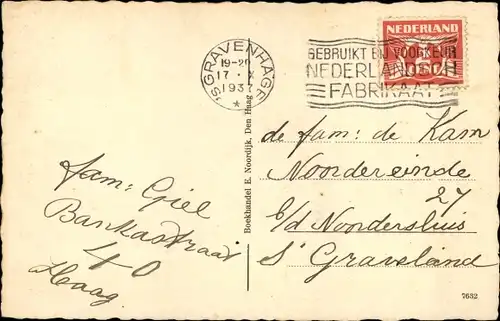 'S GRAVENHAGE
19-20
17 · X
1937
GEBRUIKT BIJ VOORKEUR
NEDERLANDSCH
FABRIKAAT
NEDERLAND
CENT
de fam: de Kam
Noordereinde
27
b/d Noordersluis
S' Graveland
fam: Giel
Bankastraat
40
Haag
Boekhandel E. Noordijk, Den Haag
7632